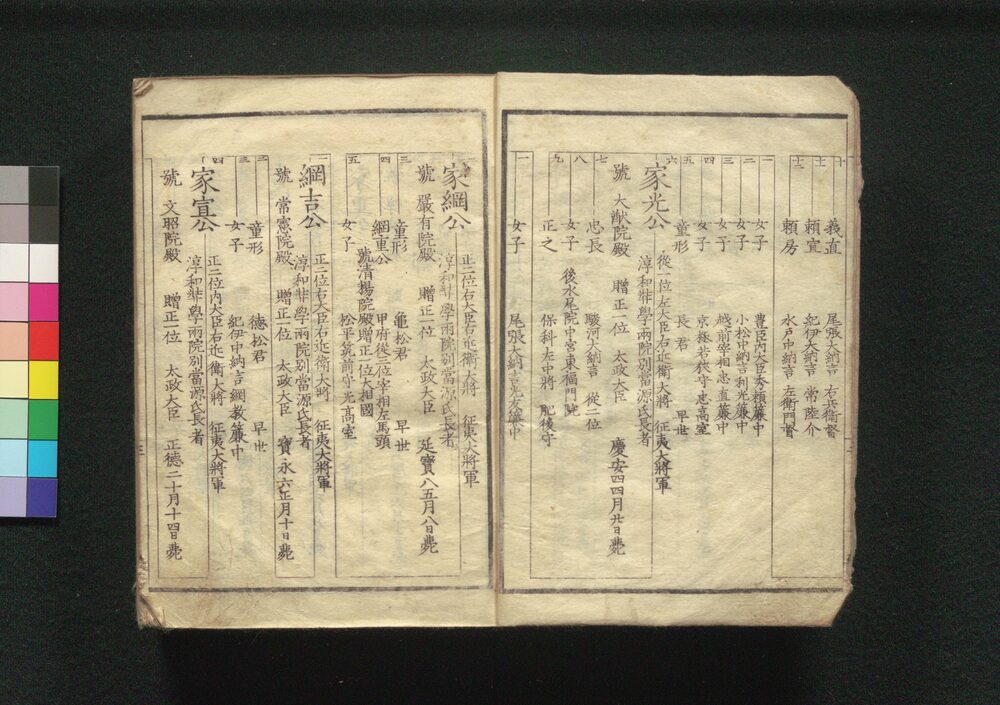 十 義直 尾張大納言 右兵衛督
十一 頼宣 紀伊大納言 常陸介
十二 頼房 水戸中納言 左衛門督
一 女子 豊臣内大臣秀頼簾中
二 女子 小松中納言利光簾中
三 女子 越前宰相忠直簾中
四 女子 京極若狭守忠高室
五 童形 長君 早世
六 家光公 從一位左大臣右近衛大將 征夷大將軍
淳和弉學兩院別當源氏長者
號 大猷院殿 贈正一位 太政大臣 慶安四四月廿日薨
七 忠長 駿河大納言 從二位
八 女子 後水尾院中宮東福門院
九 正之 保科左中將 肥後守
一 女子 尾張大納言光友簾中
二 家綱公 正二位右大臣右近衛大將 征夷大將軍
淳和弉學兩院別當源氏長者
號 嚴有院殿 贈正一位 太政大臣 延寶八五月八日薨
三 童形 亀松君 早世
四 綱重公 甲府從三位宰相左馬頭
號清揚院殿贈正一位大相國
五 女子 松平筑前守光高室
一 綱吉公 正二位右大臣右近衛大將 征夷大將軍
淳和弉學兩院別當源氏長者
號 常憲院殿 贈正一位 太政大臣 寶永六正月十日薨
二 童形 徳松君 早世
三 女子 紀伊中納言綱教簾中
四 家宣公 正二位内大臣右近衛大將 征夷大將軍
淳和弉學兩院別當源氏長者
號 文昭院殿 贈正一位 太政大臣 正徳二十月十四日薨